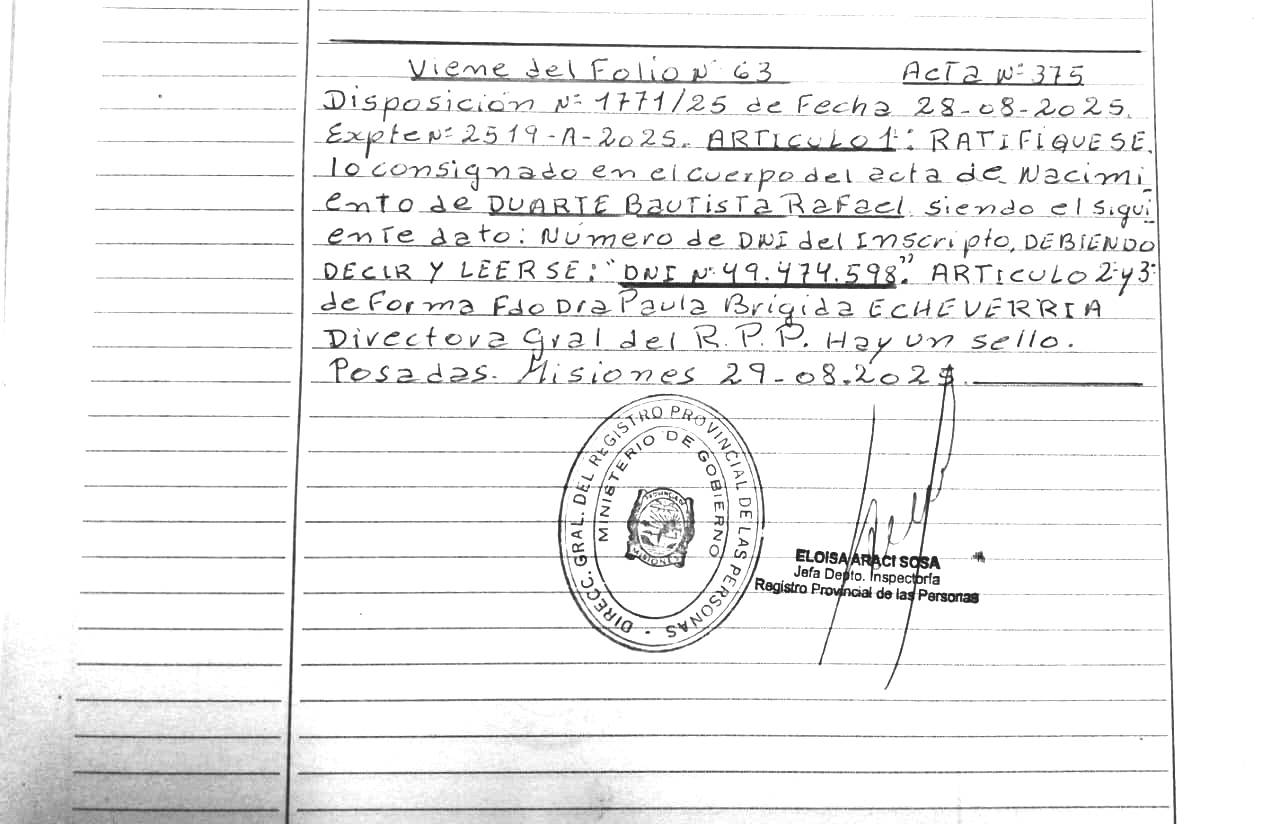 Viene del Folio Nº 63 Acta Nº 375
Disposición Nº 1771/25 de Fecha 28-08-2025.
Expte Nº 2519-A-2025. ARTICULO 1º: RATIFIQUESE,
lo consignado en el cuerpo del acta de Nacimi
ento de DUARTE Bautista Rafael, siendo el sigui
ente dato: Número de DNI del Inscripto, DEBIENDO
DECIR Y LEERSE: "DNI Nº 49.474.598". ARTICULO 2º y 3º
de Forma Fdo Dra Paula Brígida ECHEVERRIA
Directora Gral del R.P.P. Hay un sello.
Posadas. Misiones 29-08-2025.
DIRECC. GRAL. DEL REGISTRO PROVINCIAL DE LAS PERSONAS -
MINISTERIO DE GOBIERNO
MISIONES
ELOISA ARACI SOSA
Jefa Depto. Inspectoría
Registro Provincial de las Personas